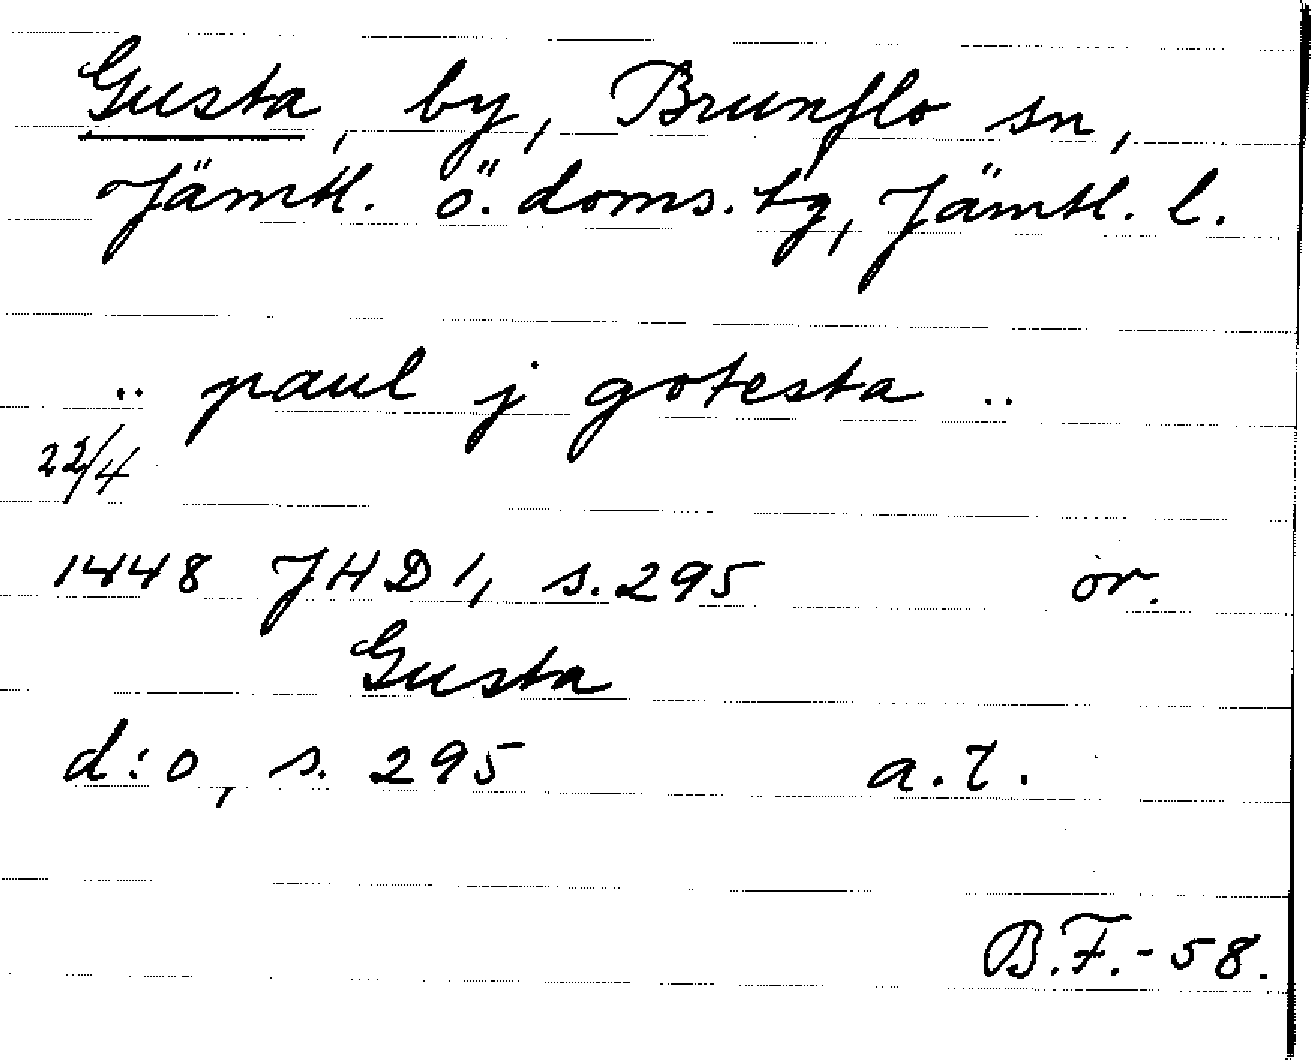 Gusta, by, Brunflo sn,
Jämtl. ö. doms. tg, Jämtl. l.
.. paul j gotesta ..
22/4
1448 JHD 1, s. 295 or.
Gusta
d:o, s. 295 a.t.
B.F.-58.